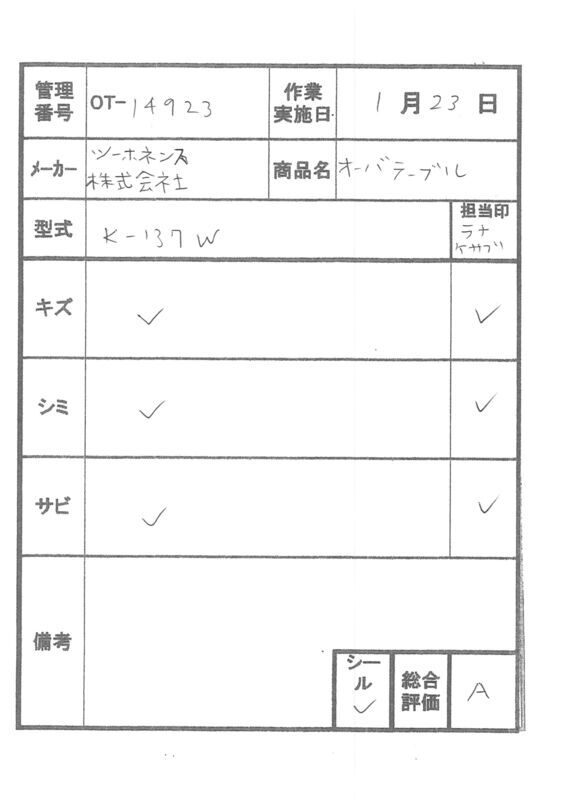 管理番号 OT-14923 作業実施日 1月23日
メーカー ツーホネンス株式会社 商品名 オーバテーブル
型式 K-137W 担当印 ラナ ケサブ
キズ ✓ ✓
シミ ✓ ✓
サビ ✓ ✓
備考
シール ✓ 総合評価 A